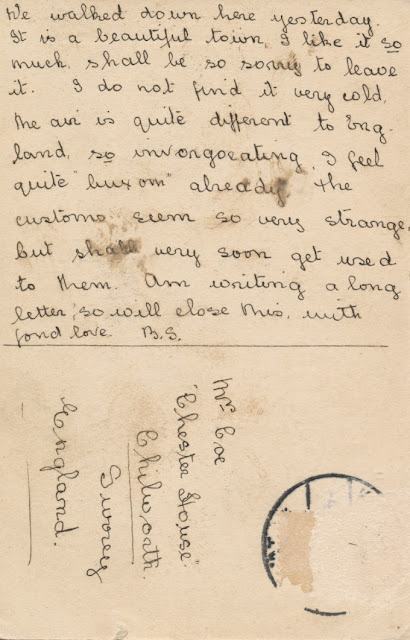 We walked down here yesterday.
It is a beautiful town, I like it so
much, shall be so sorry to leave
it. I do not find it very cold,
the air is quite different to Eng-
land, so invorgorating, I feel
quite "buxom" already. The
customs seem so very strange,
but shall very soon get used
to them. Am writing a long
letter, so will close this, with
fond love. B.S.
Mrs Coe
"Chester House"
Chilworth.
Surrey
England.